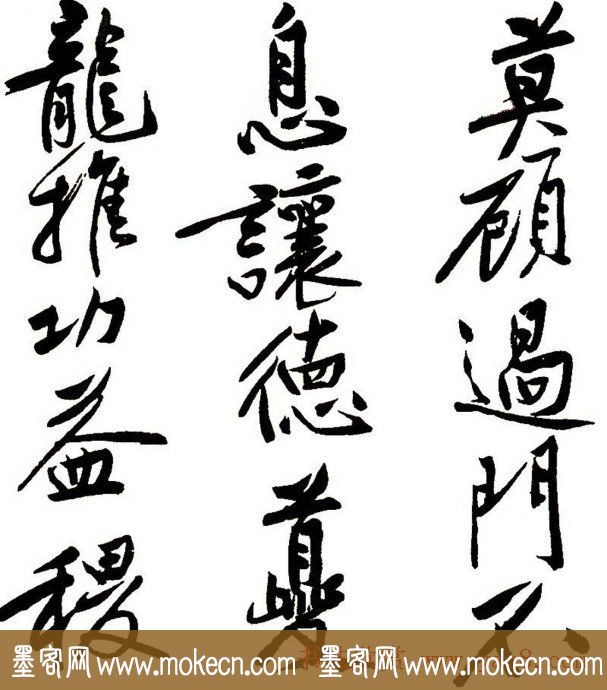 莫顧過門不
息讓德夔
龍推功益稷
墨客网 www.mokecn.com 墨客网 www.mokecn.com